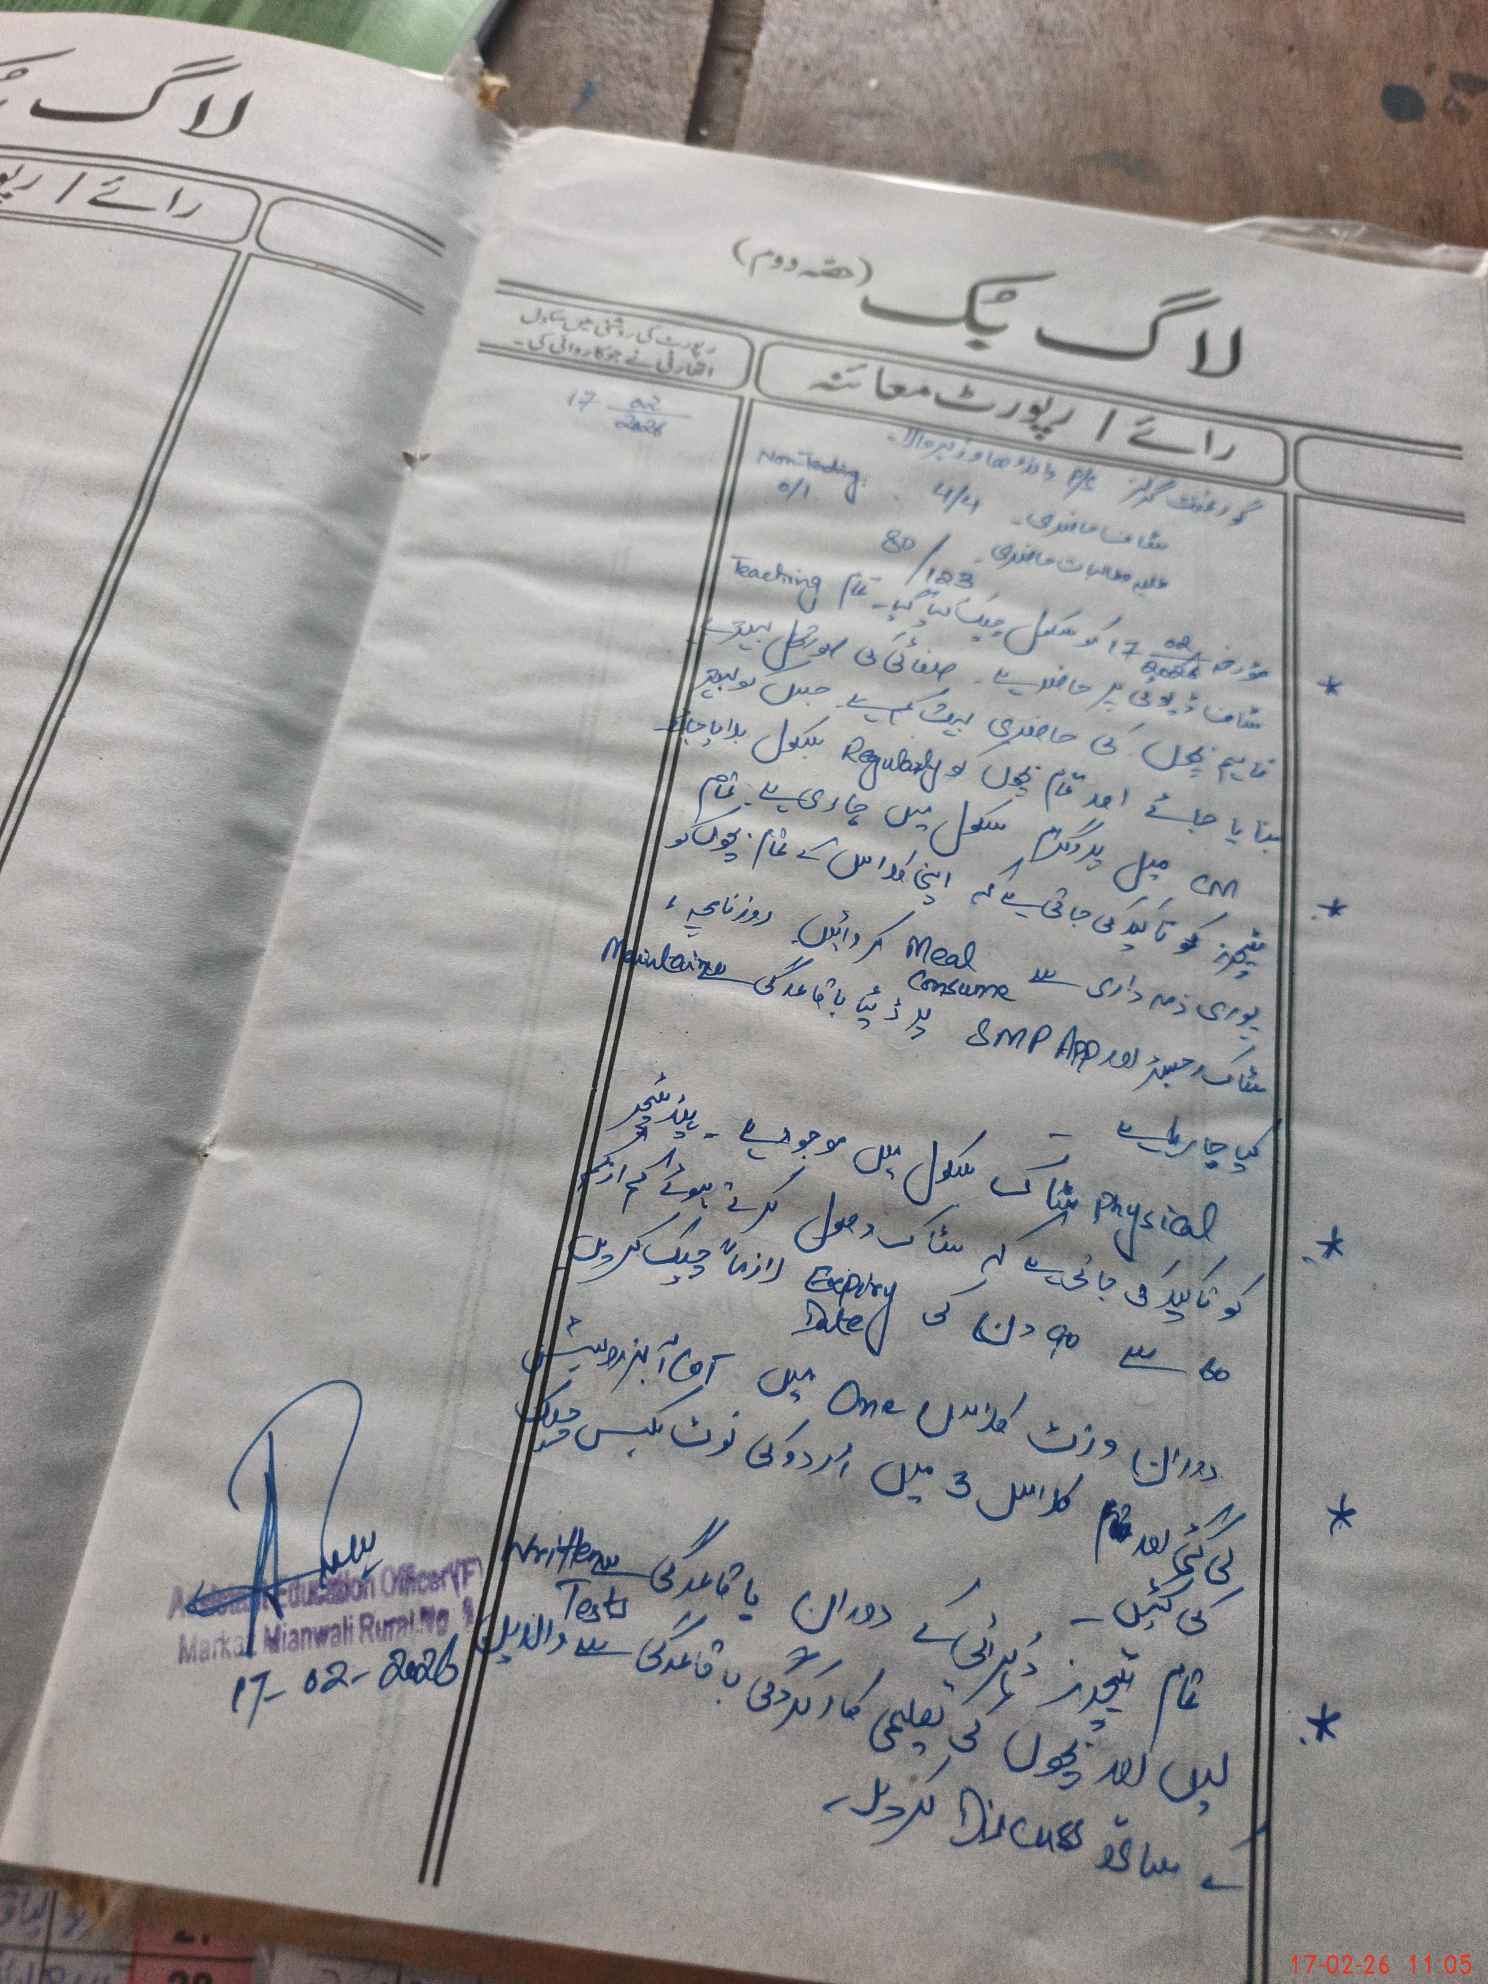 لاگ بک (حصہ دوم)
رائے / رپورٹ معائنہ
رپورٹ کی روشنی میں متداول
اتھارٹی نے جو کاروائی کی۔
17 02/2026
گورنمنٹ گرلز P/S
سٹاف حاضری۔ 4/4 Non Teaching 0/1
طلبہ طالبات حاضری۔ 80/123
* مورخہ 17 02/2026 کو سکول چیک کیا گیا۔ تمام Teaching
سٹاف ڈیوٹی پر حاضر ہے۔ صفائی کی صورتحال بہتر ہے۔
تاہم بچوں کی حاضری بہت کم ہے۔ جس کو بہتر
بنایا جائے اور تمام بچوں کو Regularly سکول بلایا جائے۔
* CM میل پروگرام سکول میں جاری ہے۔ تمام
ٹیچرز کو تاکید کی جاتی ہے کہ اپنی کلاس کے تمام بچوں کو
پوری ذمہ داری سے Meal Consume کروائیں۔ روزنامچہ،
سٹاک رجسٹر اور SMP App پر ڈیٹا باقاعدگی سے Maintain
کیا جا رہا ہے۔
* Physical سٹاک سکول میں موجود ہے۔ ہیڈ ٹیچر
کو تاکید کی جاتی ہے کہ سٹاک وصول کرتے ہوئے کم از کم
60 سے 90 دن کی Expiry Date لازماً چیک کریں۔
* دوران وزٹ کلاس One میں آبزرویشن
کی گئی اور کلاس 3 میں اردو کی نوٹ بکس چیک
کی گئیں۔
* تمام ٹیچرز دہرائی کے دوران باقاعدگی سے Written Tests
لیں اور بچوں کی تعلیمی کارکردگی باقاعدگی سے والدین
کے ساتھ Discuss کریں۔
Assistant Education Officer (F)
Markaz Mianwali Rural No. 1
17-02-2026
لاگ
رائے /
17-02-26 11:05